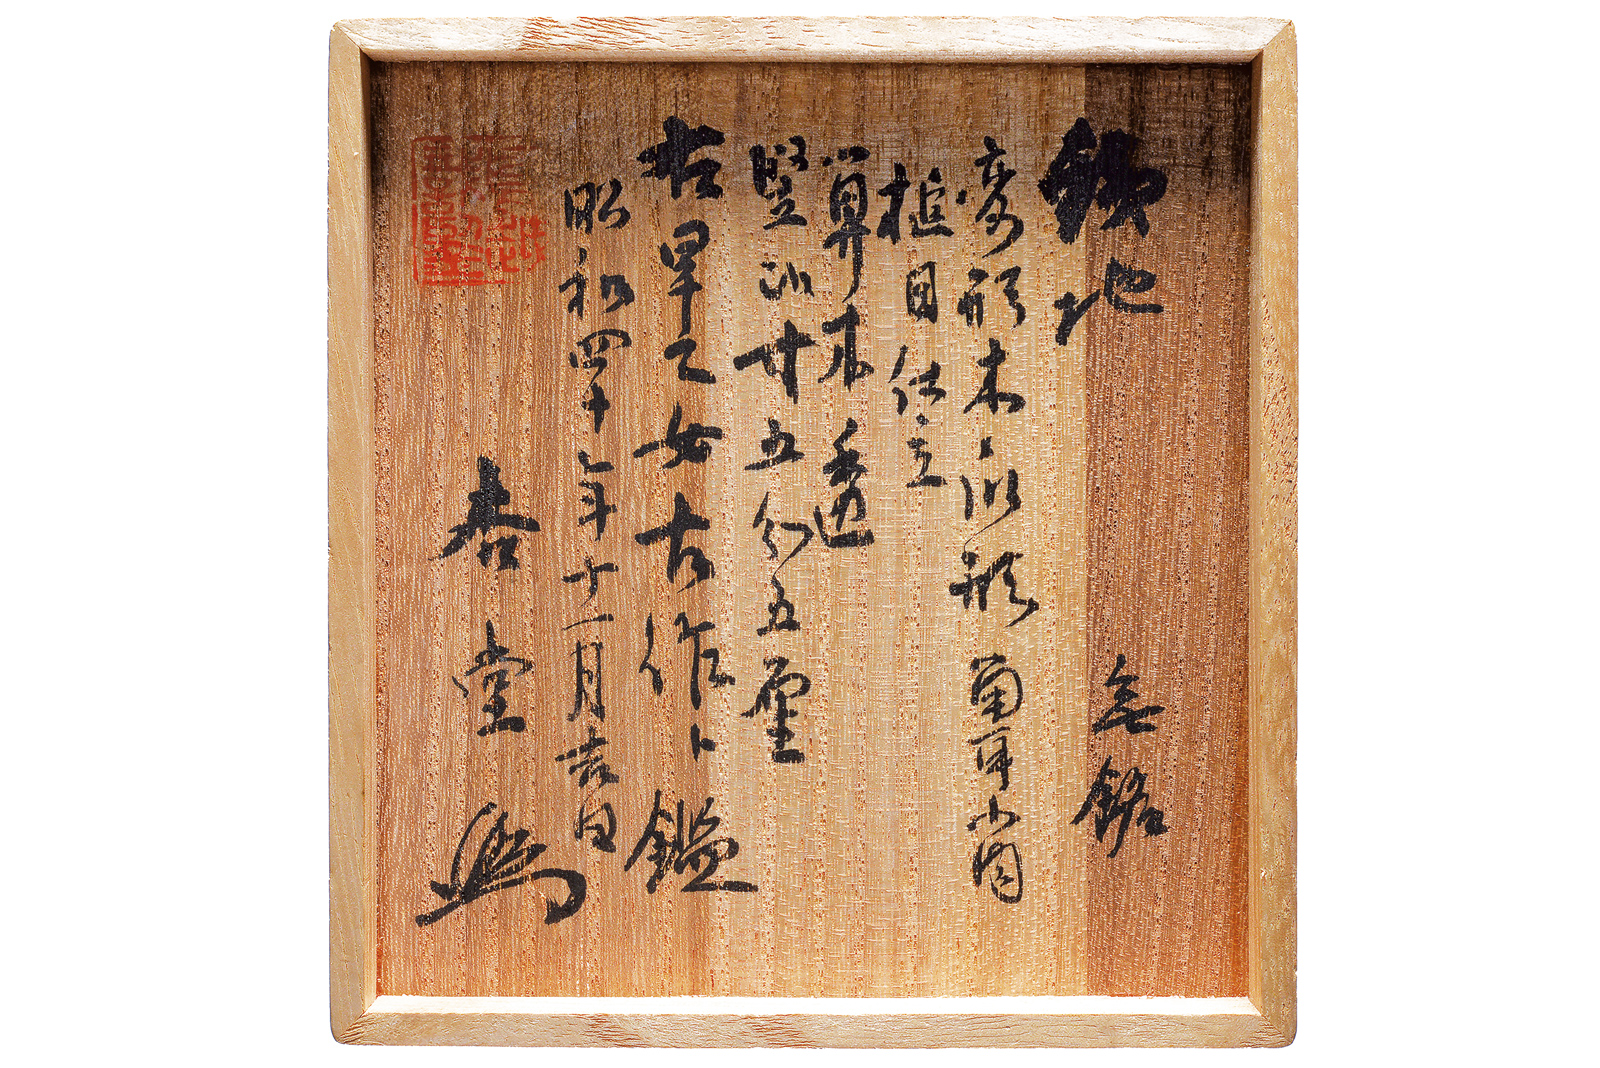 鉄地 無銘
変形木瓜形 菊耳小肉
槌目仕立
算木透
竪 廿五分五厘
右早乙女古作ト鑑
昭和四十年十一月吉日
杏堂